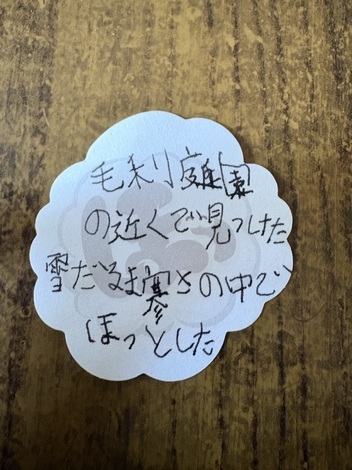 毛利庭園
の近くで見つけた
雪だるま寒さの中で
ほっとした